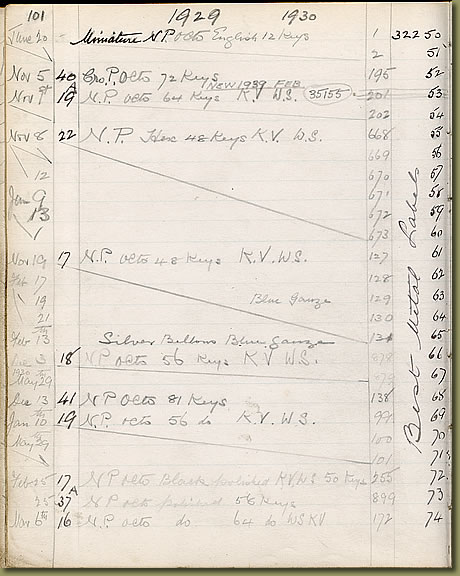 101 1929 1930
June 20 Miniature N.P. Octo English 12 Keys 1 32250
2 51
Nov 5 40 Cro. P. Octo 72 Keys 195 52
NEW 1939 FEB
Nov 1st 19 A N.P. Octo 64 Keys K.V. W.S. 35155 201 53
202 54
Nov 8 22 N.P. Hex 48 Keys K.V. W.S. 668 55
669 56
12 670 57
Jan 9 671 58
13 672 59
1 673 60
Nov 19 17 N.P. Octo 48 Keys K.V. W.S. 127 61
Feb 17 128 62
19 Blue Gauze 129 63
21 130 64
Feb 13 Silver Bellows Blue Gauze 131 65
Dec 3 18 N.P. Octo 56 Keys K.V. W.S. 878 66
1930 May 29 879 67
Dec 13 41 N.P. Octo 81 Keys 138 68
Jan 10th 19 N.P. Octo 56 do K.V. W.S. 99 69
May 29 100 70
101 71
Feb 25 17 N.P. Octo Black polished K.V. W.S. 50 Keys 255 72
25 37 A N.P. Octo polished 56 Keys 899 73
Mar 6th 16 N.P. Octo do 64 do W.S. K.V. 172 74
Best Metal Labels